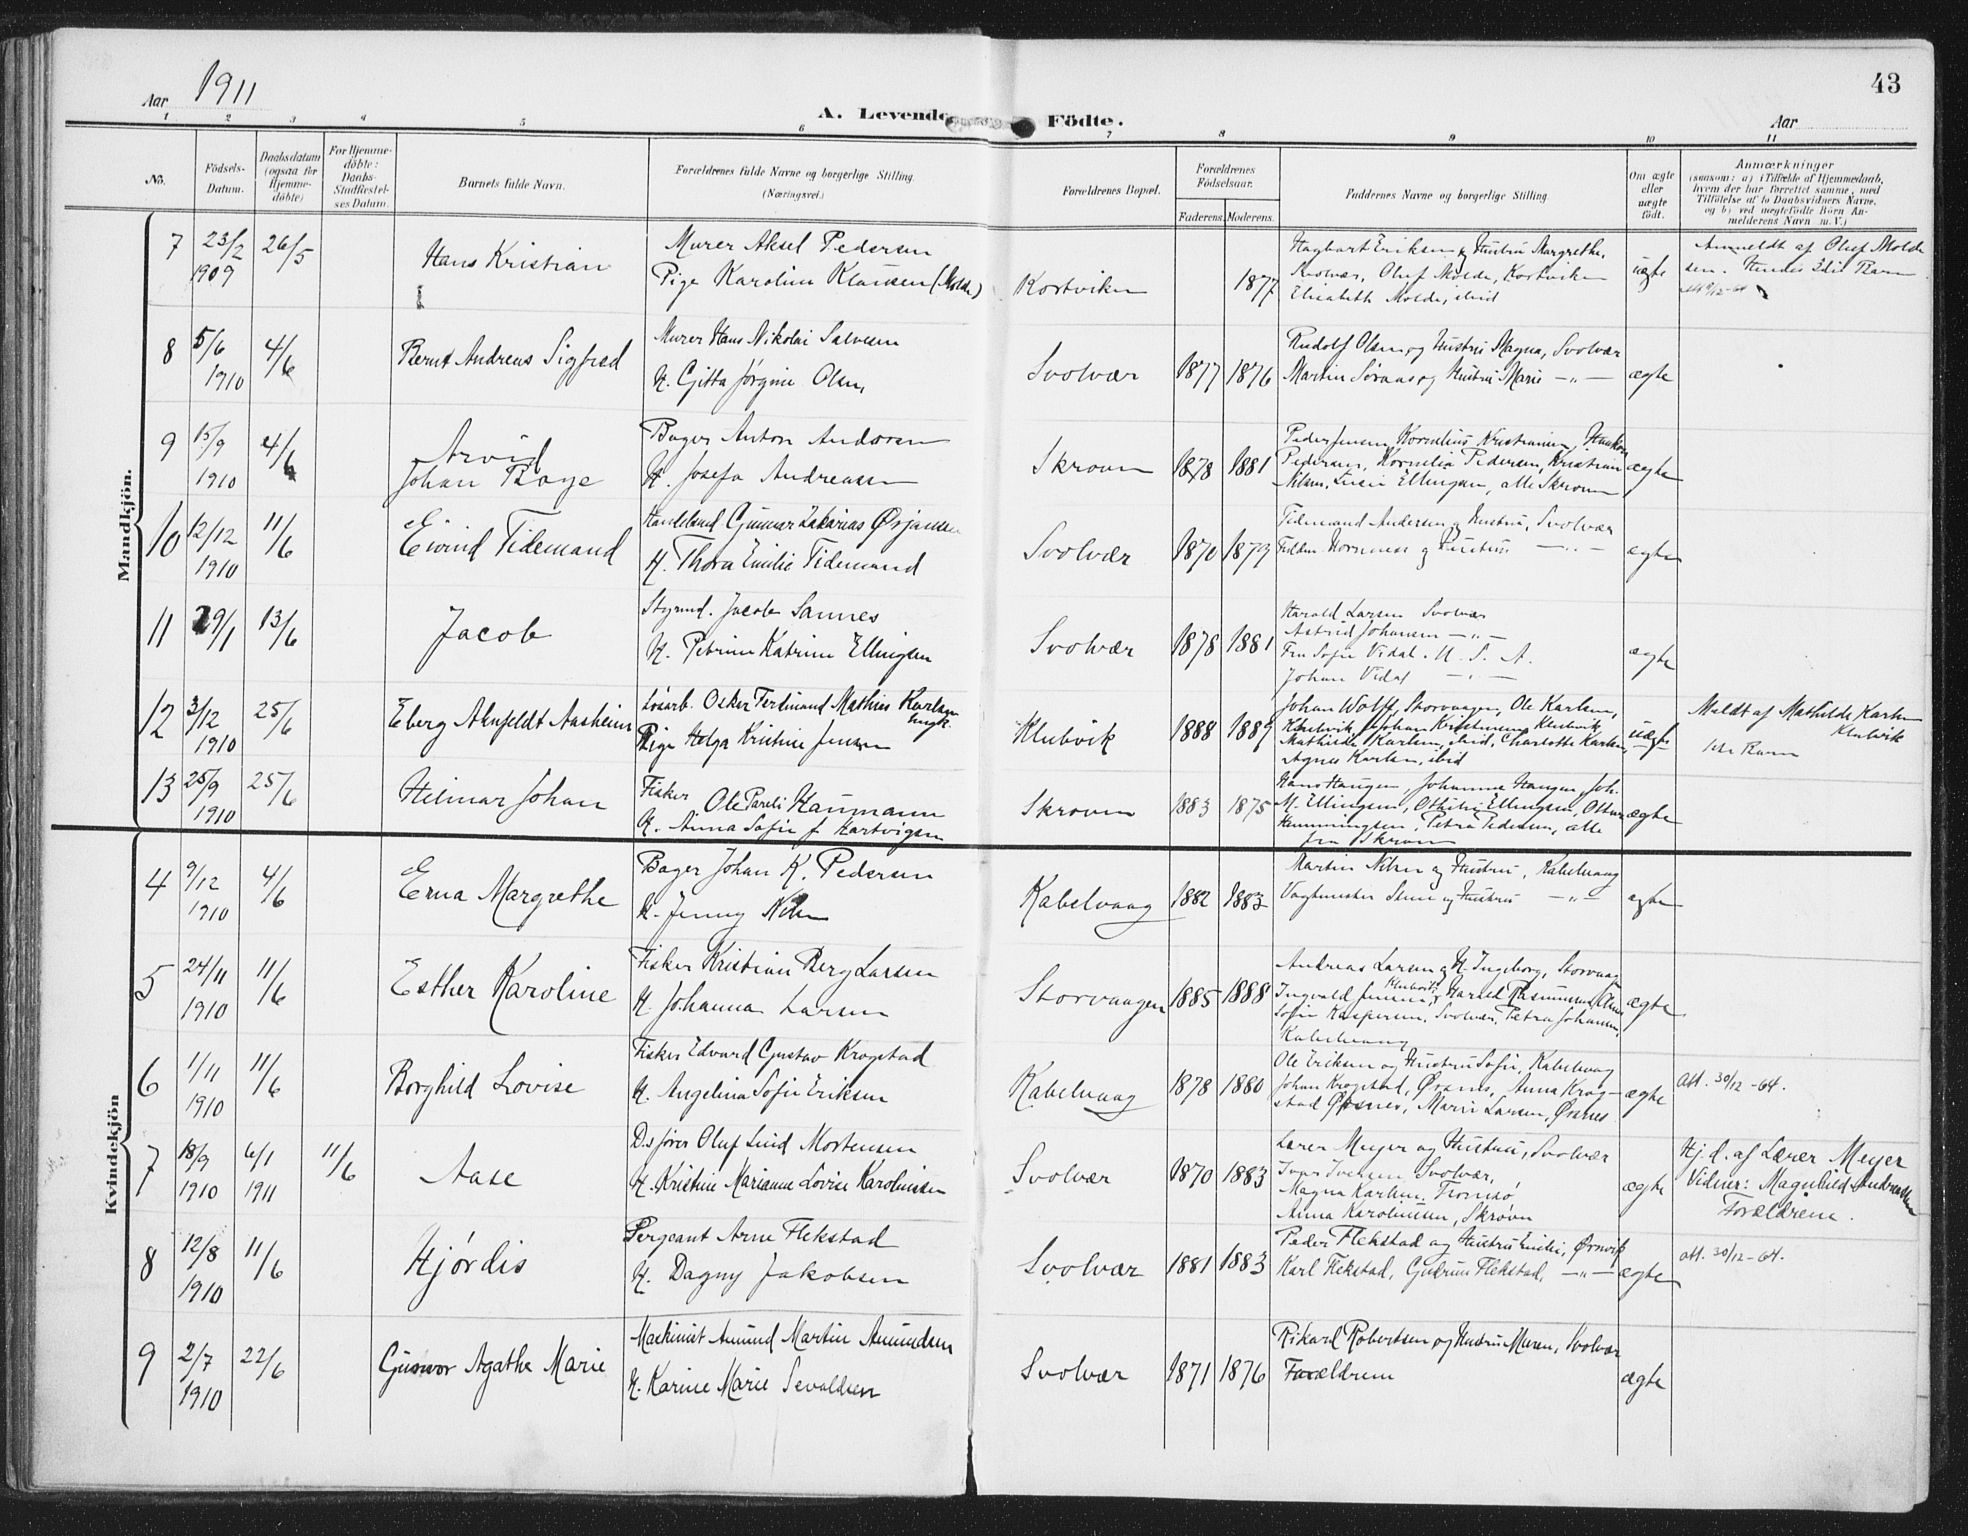 43
Aar 1911
A. Levende Födte.
Aar
1 2 3 4 5 6 7 8 9 10 11
No.
Födsels-
Datum.
Daabsdatum
(ogsaa for
Hjemme-
döbte)
For Hjemme-
döbte:
Daabs-
Stadfæstel-
ses Datum.
Barnets fulde Navn.
Forældrenes fulde Navne og borgerlige Stilling.
(Næringsvei.)
Forældrenes Bopæl.
Forældrenes
Födselsaar.
Faderens. Moderens.
Faddernes Navne og borgerlige Stilling
Om ægte
eller
uægte
födt.
Anmærkninger
(saasom: a) i Tilfælde af Hjemmedaab,
hvem der har forrettet samme, med
Tilföielse af to Daabsvidners Navne,
og b) ved uægtefödte Börn An-
melderens Navn m. V.)
Mandkjön.
7 23/2 1909 26/5
Hans Kristian
Murer Aksel Pedersen
Pige Karoline Klausen (Molde)
Kortviken
1877
Hagbart Eriksen og Hustru Margrethe,
Svolvær, Oluf Molde, Kortviken
Elisabeth Molde, ibid
uægte
Anmeldt af Oluf Molde
sen. Hendes 3die Barn
8 5/6 1910 4/6
Bernt Andreas Sigfred
Murer Hans Nikolai Salvesen
H. Gitta Jørgine Olsen,
Svolvær
1877 1876
Rudolf Olsen og Hustru Magna, Svolvær
Martin Søraas og Hustru Marie —„—
ægte
9 15/9 1910 4/6
Arvid
Johan Tharje
Bager Anton Andersen
H. Josefa Andreassen
Skroven
1878 1881
Peder Jensen, Kornelius Kristiansen, Haakon
Pedersen, Kornelia Pedersen, Kristian
Nilsen, Lusie Ellingsen, alle Skroven
ægte
10 12/12 1910 11/6
Eivind Tidemand
Handelsmd Gunnar Zakarias Ørjansen
H. Thora Emilie Tidemand
Svolvær
1870 1879
Tidemand Andersen og Hustru, Svolvær
Hornness og Hustru —„—
ægte
11 29/1 13/6
Jacob
Styrmd. Jacob Sannes
H. Petrine Katrine Ellingsen
Svolvær
1878 1881
Harald Larsen Svolvær
Astrid Johansen —„—
Fru Sofie Vidal. U. S. A.
Johan Vidal —„—
ægte
12 3/12 1910 25/6
Eberg Alnfeldt Aasheim
Løsarb. Oskar Ferdinand Mathias Karlsen
Ungk.
Pige Helga Kristine Jensen
Klubvik
1888 1889
Johan Wolff, Storvaagen, Ole Karlsen,
Klubvik, Johan Kristiansen Klubvik
Mathilde Karlsen, ibid, Charlotte Karlsen,
Agnes Karlsen, ibid
uægte
Meldt af Mathilde Karlsen
Klubvik
1ste Barn
13 25/9 1910 25/6
Hilmar Johan
Fisker Ole Pareli Haumann
H. Anna Sofie f. Hartvigsen
Skroven
1883 1875
Hans Haugen, Johanna Haugen, Joh.
M. Ellingsen, Otthilie Ellingsen, Ottar
Hemmingsen, Petra Pedersen, alle
fra Skroven
ægte
Kvindekjön
4 9/12 1910 4/6
Erna Margrethe
Bager Johan K. Pedersen
H. Jenny Nilsen
Kabelvaag
1882 1883
Martin Nilsen og Hustru, Kabelvaag
Vagtmester Steen og Hustru —„—
ægte
5 24/11 1910 11/6
Esther Karoline
Fisker Kristian Berg Larsen
H. Johanna Larsen
Storvaagen
1885 1888
Andreas Larsen og H. Ingeborg, Storvaag
Ingvald Jensen, Klubvik, Harald Rasmussen,
Sofie Kaspersen, Svolvær, Petra Johansen,
Kabelvaag
ægte
6 1/11 1910 11/6
Borghild Lovise
Fisker Edvard Gustav Krogstad
H. Angelina Sofie Eriksen
Kabelvaag
1878 1880
Ole Eriksen og Hustru Sofie, Kabelvaag
Johan Krogstad, Ørsnes, Anna Krog-
stad Ørsnes, Marie Larsen, Ørsnes
ægte
att. 30/12-64.
7 18/9 1910 6/1 1911 11/6
Aase
D.s fører Oluf Lind Mortensen
H. Kristine Marianne Lovise Karolinsen
Svolvær
1870 1883
Lærer Meyer og Hustru, Svolvær
Ivar Iversen Svolvær,
Magna Karlsen, Tromsø
Anna Karolinsen, Skroven
ægte
Hj. d. af Lærer Meyer
Vidner: Magnhild Andreassen
Forældrene.
8 12/8 1910 11/6
Hjørdis
Sergeant Arne Flekstad
H. Dagny Jakobsen
Svolvær
1881 1883
Peder Flekstad og Hustru Emilie, Ørsvik
Karl Flekstad, Gudrun Flekstad, —„—
ægte
att. 30/12-64.
9 2/7 1910 22/6
Gunvor Agathe Marie
Maskinist Amund Martin Amundsen
H. Karine Marie Sevaldsen
Svolvær
1871 1876
Rikard Robertsen og Hustru Maren, Svolvær
Forældrene
ægte